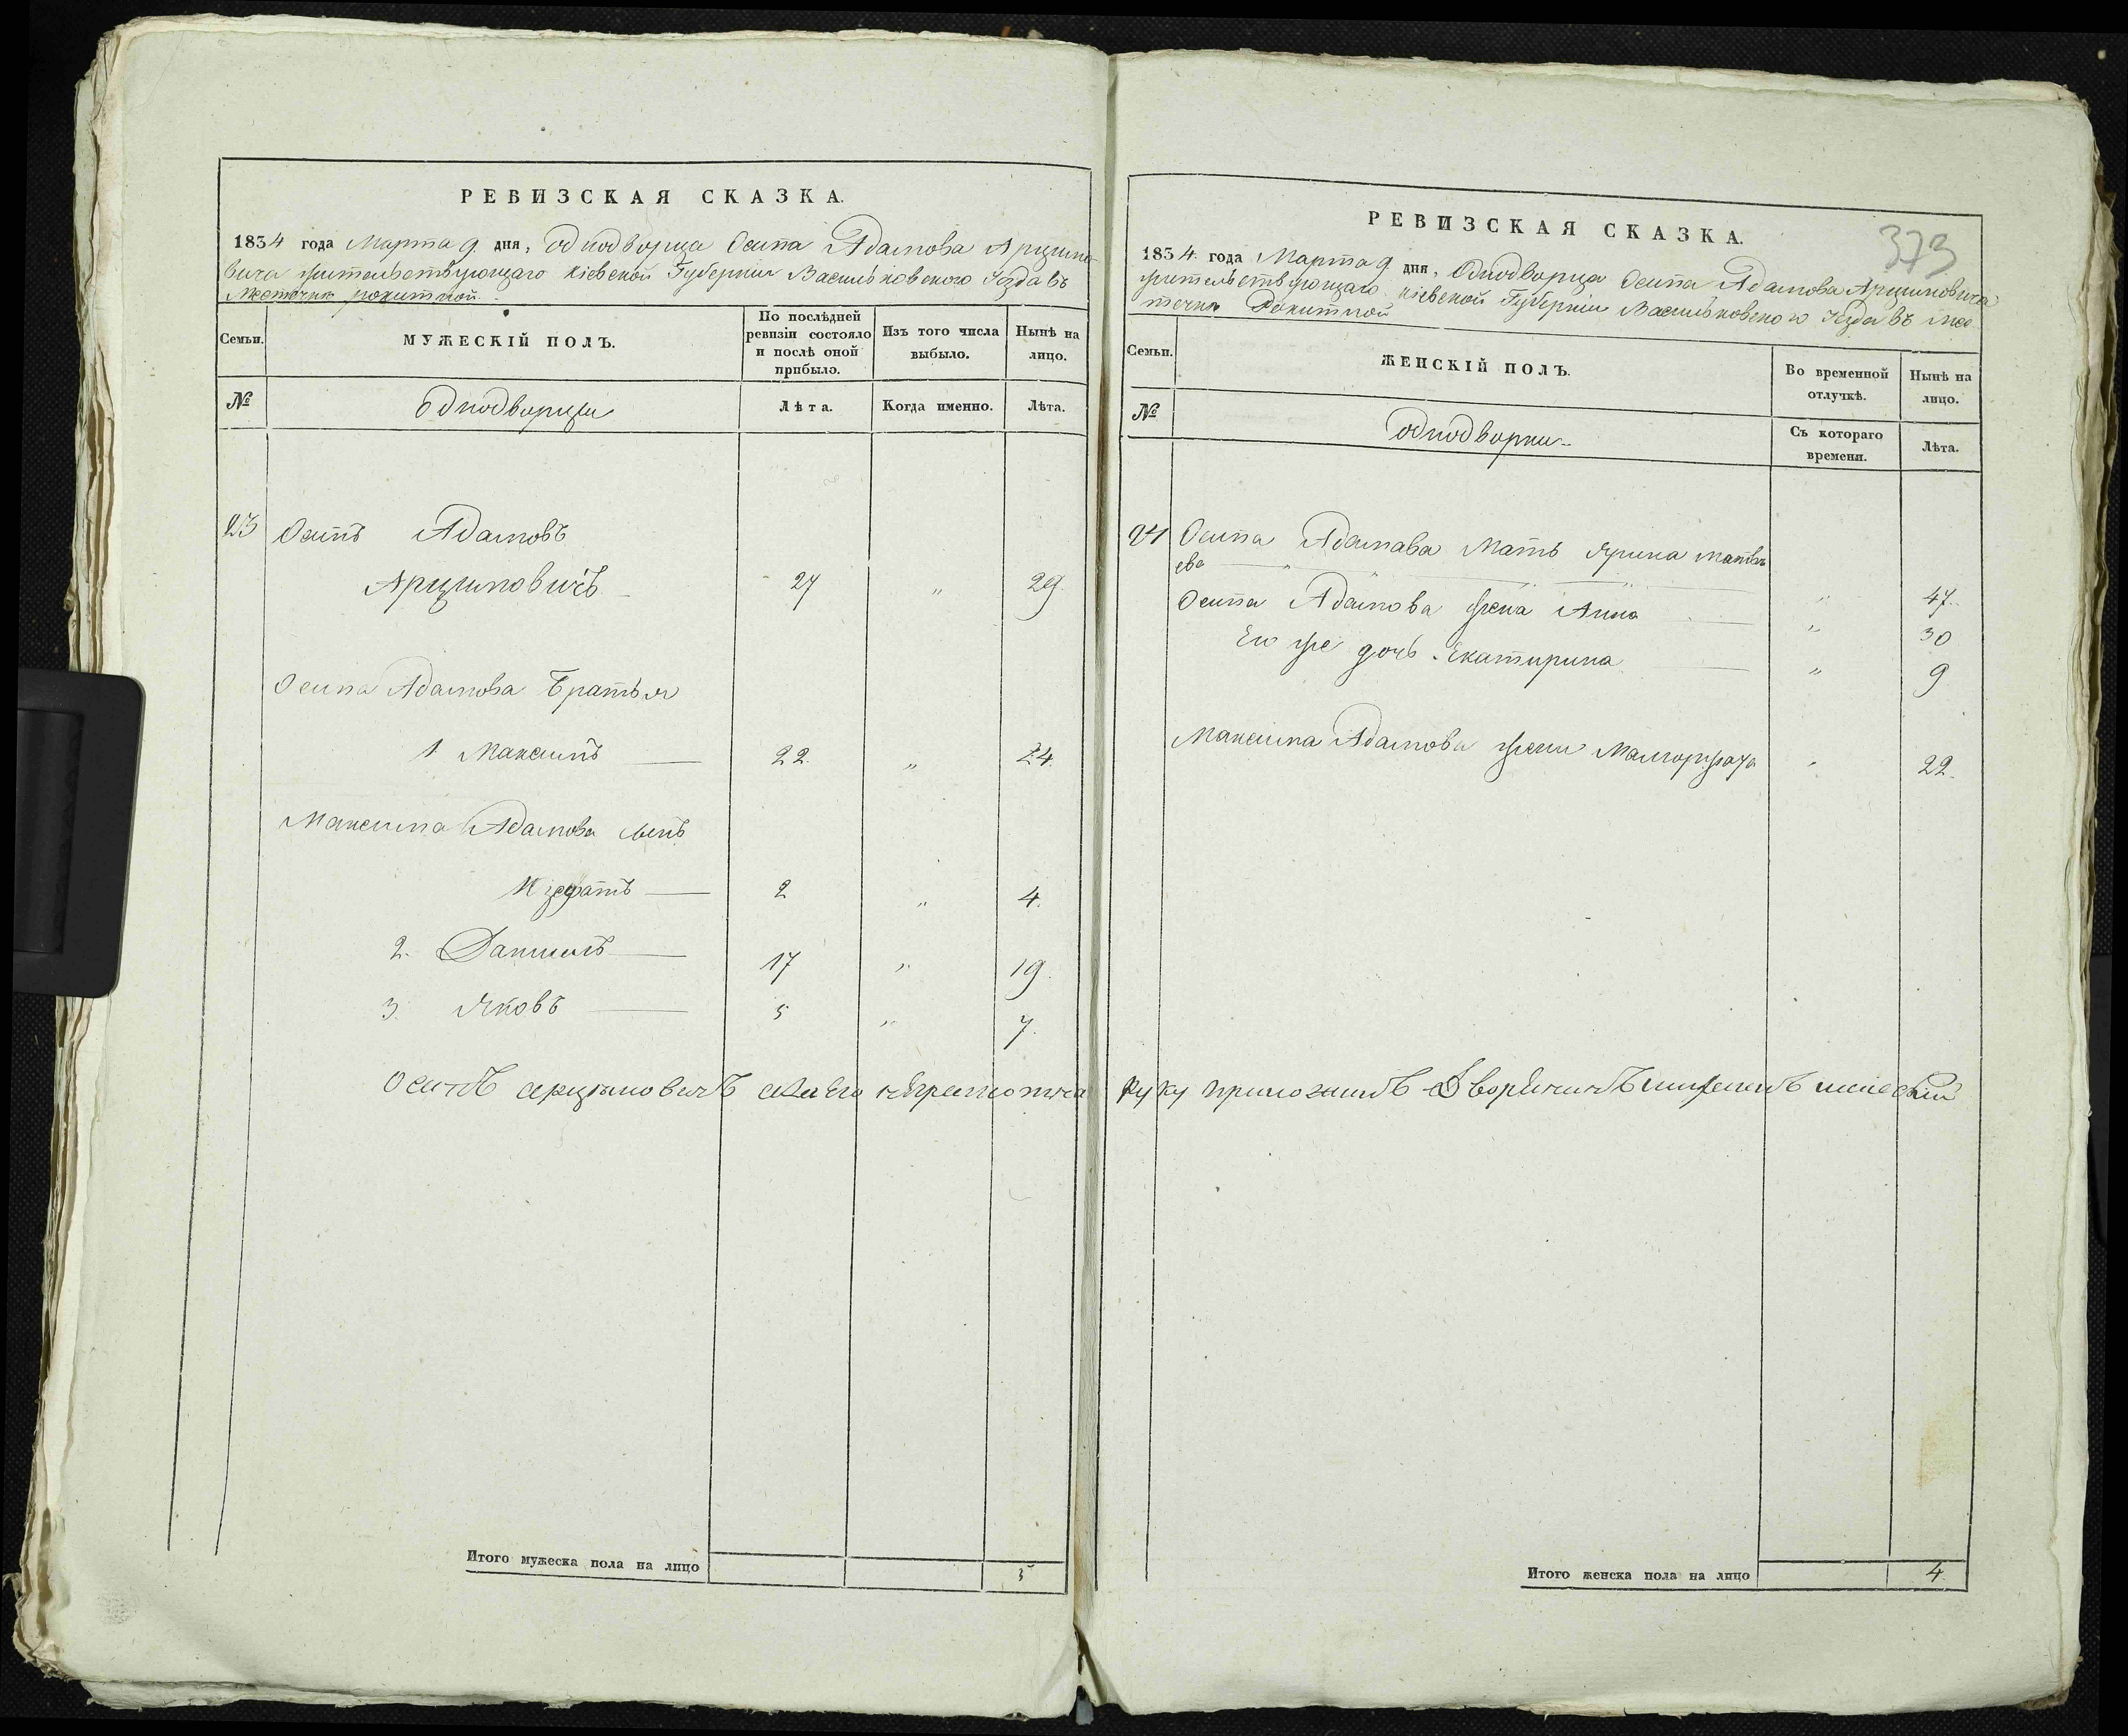 РЕВИЗСКАЯ СКАЗКА.
1834 года Марта 9 дня, однодворца Осипа Адамова Арцимо-
вича жительствующаго Кіевской Губерніи Васильковского Уезда въ
Местечке рокитной
Семьи.
МУЖЕСКІЙ ПОЛЪ.
По послѣдней ревизіи состояло и послѣ оной прибыло.
Изъ того числа выбыло.
Нынѣ на лицо.
№
однодворцы
Лѣта.
Когда именно.
Лѣта.
23 Осипъ Адамовъ
Арцимовичъ 27 " 29.
Осипа Адамова Братья
1 Максимъ 22. " 24.
Максима Адамова сынъ
Изефатъ 2 " 4.
2. Даниилъ 17 " 19.
3. Яковъ 5 " 7.
Осипъ арцимовичъ а за его неграмотна
Итого мужеска пола на лицо 5
373
РЕВИЗСКАЯ СКАЗКА.
1834. года Марта 9 дня, Однодворца Осипа Адамова Арцимовича
жительствующаго кіевской Губерніи Васильковского Уезда въ мес
течке Рокитной
Семьи.
ЖЕНСКІЙ ПОЛЪ.
Во временной отлучкѣ.
Нынѣ на лицо.
№
однодворки
Съ котораго времени.
Лѣта.
24 Осипа Адамава Мать Ярина матве
ева " 47.
Осипа Адамова жена Анна " 30
Его же дочь Екатирина " 9
Максима Адамова жена Малгоржата " 22.
руку приложилъ Дворянинъ
Итого женска пола на лицо 4